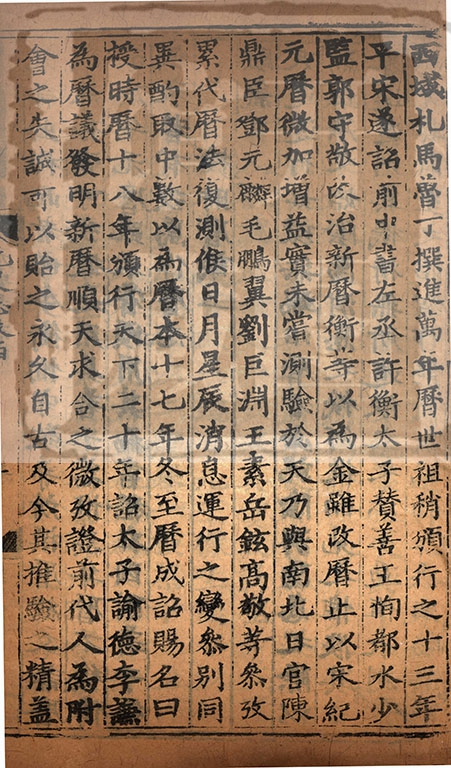 西域札馬魯丁撰進萬年曆世祖稍頒行之十三年
平宋遂詔前中書左丞許衡太子賛善王恂都水少
監郭守敬改治新曆衡等以為金雖改曆止以宋紀
元曆微加增益實未嘗測驗於天乃與南北日官陳
鼎臣鄧元麟毛鵬翼劉巨淵王素岳鉉高敬等叅攷
累代曆法復測候日月星辰消息運行之變叅別同
異酌取中數以為曆本十七年冬至曆成詔賜名曰
授時曆十八年頒行天下二十年詔太子諭德李謙
為曆議發明新曆順天求合之微攷證前代人為附
會之失誠可以貽之永久自古及今其推驗之精蓋